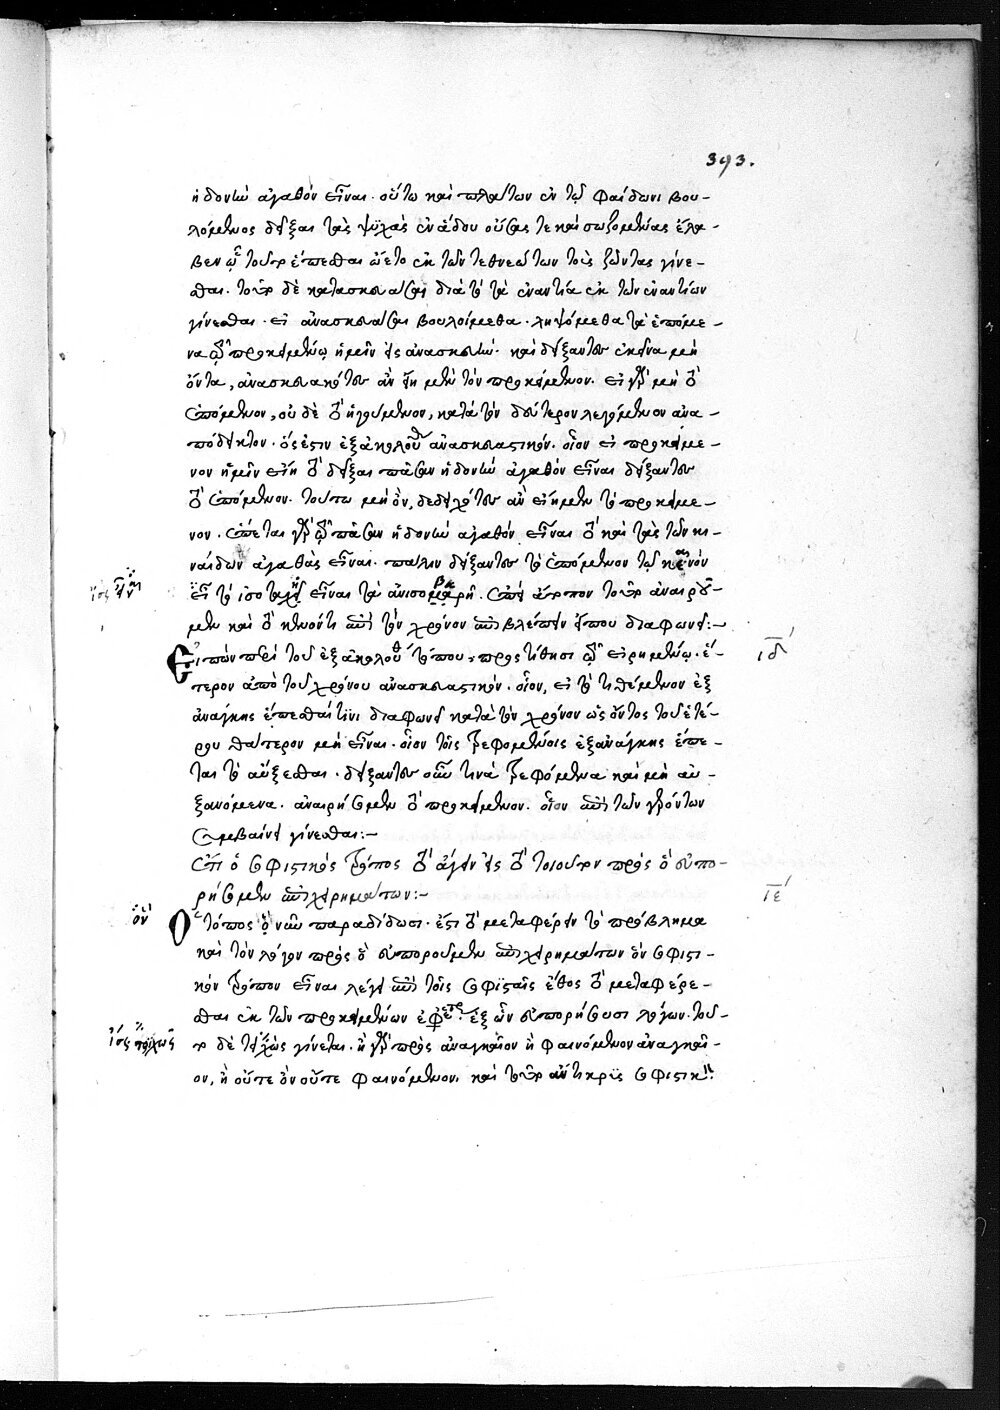 393.
ἡδονὴν ἀγαθὸν εἶναι. οὕτω καὶ πλάτων ἐν τῷ φαίδωνι βου-
λόμενος δεῖξαι τὰς ψυχὰς ἐν ἅδου οὔσας τε καὶ σωζομένας ἔλα-
βεν ᾧ τοῦτο ἕπεσθαι ᾤετο ἐκ τῶν τεθνεώτων τοὺς ζῶντας γίνε-
σθαι. τοῦτο δὲ κατασκευάσας διὰ τοῦ τὰ ἐναντία ἐκ τῶν ἐναντίων
γίνεσθαι. εἰ ἀνασκευάσαι βουλοίμεθα. ληψόμεθα τὰ ἑπόμε-
να τῷ προκειμένῳ ἡμῖν εἰς ἀνασκευήν. καὶ δείξαντες ἐκεῖνα μὴ
ὄντα, ἀνασκευακότες ἂν εἴημεν τὸν προκείμενον. εἰ γὰρ μὴ τὸ
ἑπόμενον, οὐδὲ τὸ ἡγούμενον, κατὰ τὸν δεύτερον λεγόμενον ἀνα-
πόδεικτον. ὅς ἐστιν ἐξ ἀκολούθου ἀνασκευαστικόν. οἷον εἰ προκείμε-
νον ἡμῖν εἴη τὸ δεῖξαι πᾶσαν ἡδονὴν ἀγαθὸν εἶναι δείξαντες
τὸ ἑπόμενον. τούτω μὴ ὂν, δεδειχότες ἂν εἴημεν τὸ προκείμε-
νον. ἕπεται γὰρ τῷ πᾶσαν ἡδονὴν ἀγαθὸν εἶναι τὸ καὶ τὰς τῶν κι-
ναίδων ἀγαθὰς εἶναι. πάλιν δείξαντες τὸ ἑπόμενον τῷ κενὸν
εἶναι τὸ ἰσοταχῆ εἶναι τὰ ἀνισοβαρῆ. ἐπεὶ ἄτοπον τοῦτο ἀναιροῦ-
μεν καὶ τὸ κενόν· ἔτι ἐπὶ τὸν χρόνον ἐπιβλέπειν εἴπου διαφωνεῖ:-
Εἰπὼν περὶ τοῦ ἐξ ἀκολούθου τόπου, προστίθησι τῷ εἰρημένῳ. ἕ-
τερον ἀπὸ τοῦ χρόνου ἀνασκευαστικόν. οἷον, εἰ τὸ τιθέμενον ἐξ
ἀνάγκης ἕπεσθαί τινι διαφωνεῖ κατὰ τὸν χρόνον ὡς ὄντος τοῦ ἑτέ-
ρου θάτερον μὴ εἶναι. οἷον τοῖς τρεφομένοις ἐξ ἀνάγκης ἕπε-
ται τὸ αὔξεσθαι. δείξαντες οὖν τινὰ τρεφόμενα καὶ μὴ αὐ-
ξανόμενα. ἀναιρήσομεν τὸ προκείμενον. οἷον ἐπὶ τῶν γερόντων
συμβαίνει γίνεσθαι:-
ἔτι ὁ σοφιστικὸς τρόπος τὸ ἄγειν εἰς τὸ τοιοῦτον πρὸς ὃ εὐπο-
ρήσομεν ἐπιχειρημάτων:-
Ὁ τόπος ὃν νῦν παραδίδωσι. ἔστι τὸ μεταφέρειν τὸ πρόβλημα
καὶ τὸν λόγον πρὸς ὃ εὐποροῦμεν ἐπιχειρημάτων ὃν σοφιστι-
κὸν τρόπον εἶναι λέγει ἐπεὶ τοῖς σοφισταῖς ἔθος τὸ μεταφέρε-
σθαι ἐκ τῶν προκειμένων ἐφ' ἕτερ. ἐξ ὧν εὐπορήσουσι λόγων. τοῦ-
το δὲ τριχῶς γίνεται. ἢ γὰρ πρὸς ἀναγκαῖον ἢ φαινόμενον ἀναγκαῖ-
ον, ἢ οὔτε ὂν οὔτε φαινόμενον. καὶ τοῦτο ἄντικρυς σοφιστικ
ιδ΄
ιε΄
ὃν
ἴσως τριχῶς